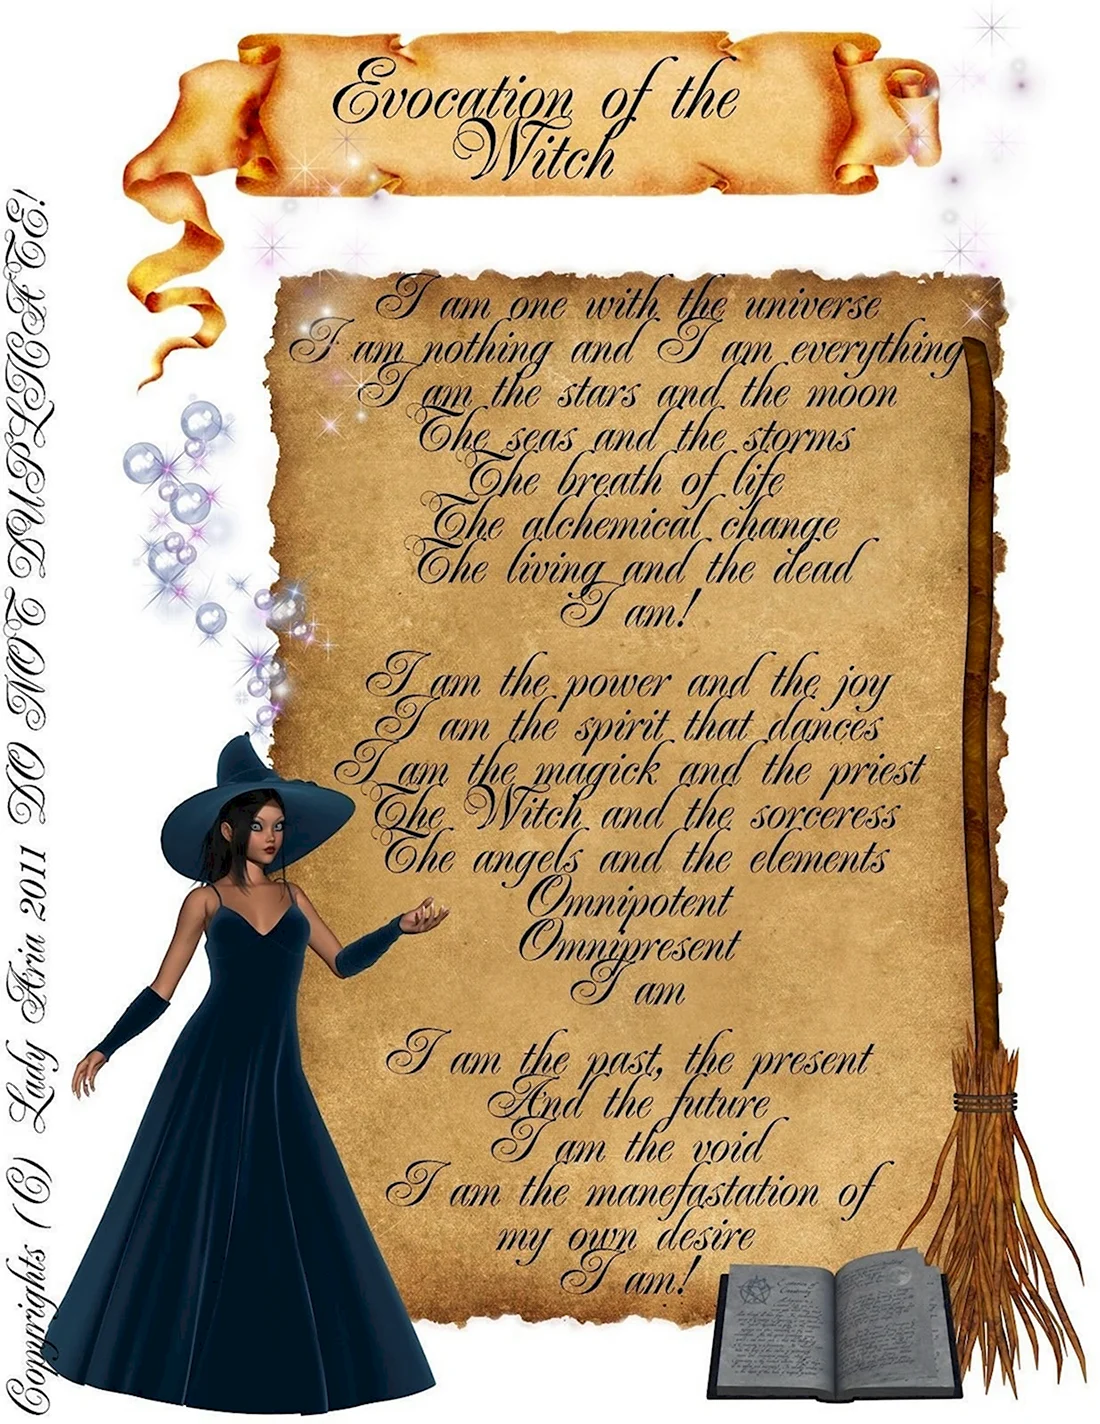 Evocation of the
Witch
I am one with the universe
I am nothing and I am everything
I am the stars and the moon
The seas and the storms
The breath of life
The alchemical change
The living and the dead
I am!
I am the power and the joy
I am the spirit that dances
I am the magick and the priest
The Witch and the sorceress
The angels and the elements
Omnipotent
Omnipresent
I am
I am the past, the present
And the future
I am the void
I am the manefastation of
my own desire
I am!
Copyrights (C) Lady Aria 2011 DO NOT DUPLICATE!